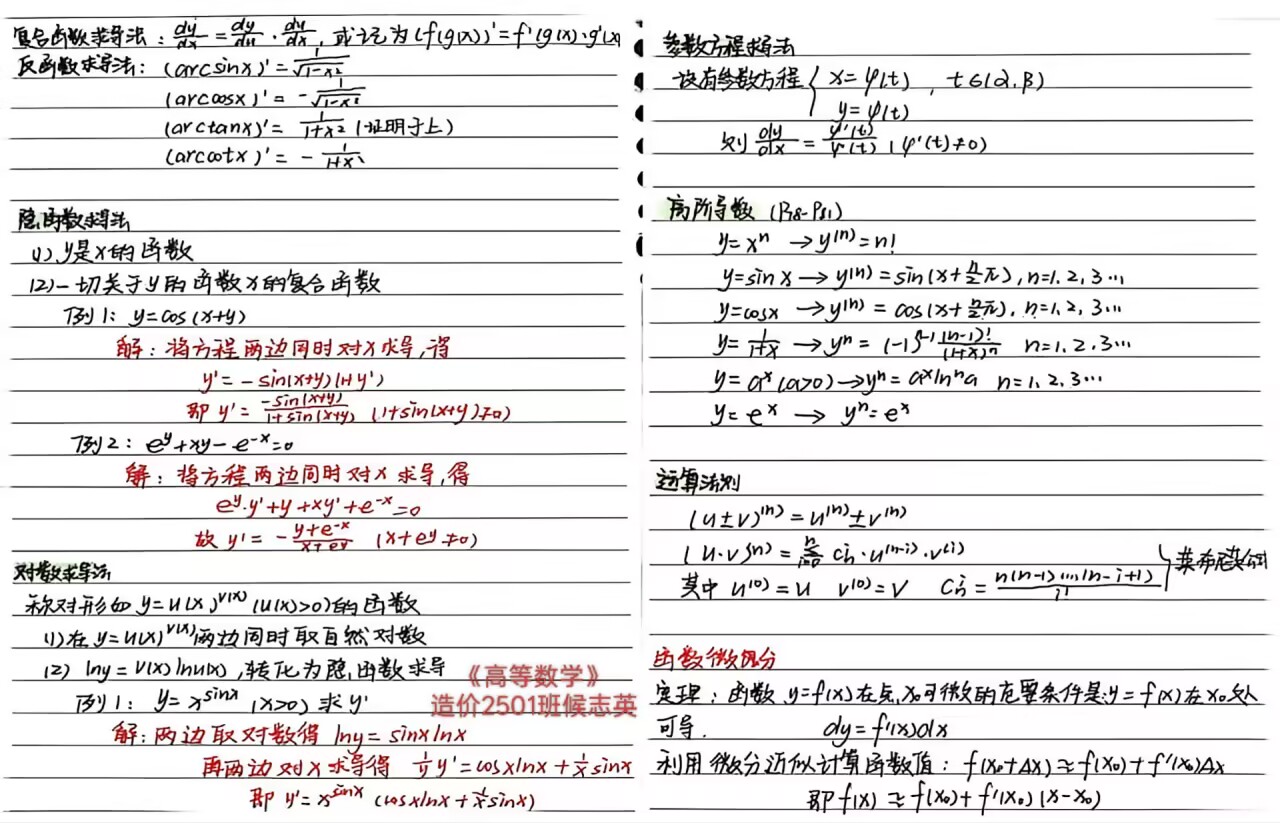 复合函数求导法：dy/dx = dy/du · dy/dx，或记为 (f(g(x))' = f'(g(x)·g'(x)
反函数求导法：(arcsinx)' = 1/√(1-x²)
(arccosx)' = - 1/√(1-x²)
(arctanx)' = 1/(1+x²) (证明于上)
(arccotx)' = - 1/(1+x²)
隐函数求导法
(1) y是x的函数
(2) 一切关于y的函数x的复合函数
例1：y=cos(x+y)
解：将方程两边同时对x求导，得
y' = -sin(x+y)(1+y')
即 y' = -sin(x+y)/(1+sin(x+y)) (1+sin(x+y)≠0)
例2：e^y+xy-e^-x=0
解：将方程两边同时对x求导，得
e^y·y'+y+xy'+e^-x=0
故 y' = - (y+e^-x)/(x+e^y) (x+e^y≠0)
对数求导法
称对形如 y=u(x)^v(x) (u(x)>0)的函数
(1) 在 y=u(x)^v(x) 两边同时取自然对数
(2) lny=v(x)lnu(x)，转化为隐函数求导
例1：y=x^sinx (x>0) 求y'
解：两边取对数得 lny=sinxlnx
再两边对x求导得 1/y y'=cosxlnx+1/x sinx
即 y'=x^sinx (cosxlnx+1/x sinx)
《高等数学》
造价2501班候志英
参数方程求导法
设有参数方程 { x=φ(t)，t∈(α,β)
y=ψ(t)
则 dy/dx = ψ'(t)/φ'(t) (φ'(t)≠0)
高阶导数 (P78-P81)
y=x^n → y^(n)=n!
y=sinx → y^(n)=sin(x+n/2 π), n=1.2.3…
y=cosx → y^(n)=cos(x+n/2 π), n=1.2.3…
y=1/(1+x) → y^n=(-1)^n-1 (n-1)!/(1+x)^n n=1.2.3…
y=a^x(a>0) → y^n=a^x ln^n a n=1.2.3…
y=e^x → y^n=e^x
运算法则
(u±v)^(n)=u^(n)±v^(n)
(u·v)^(n)=Σ(i=0→n) C_n^i·u^(n-i)·v^(i)
其中 u^(0)=u v^(0)=v C_n^i = n(n-1)…(n-i+1)/i! } 莱布尼茨公式
函数微分
定理：函数 y=f(x)在点x₀可微的充要条件是y=f(x)在x₀处
可导. dy=f'(x)dx
利用微分近似计算函数值：f(x₀+Δx)≈f(x₀)+f'(x₀)Δx
即 f(x)≈f(x₀)+f'(x₀)(x-x₀)